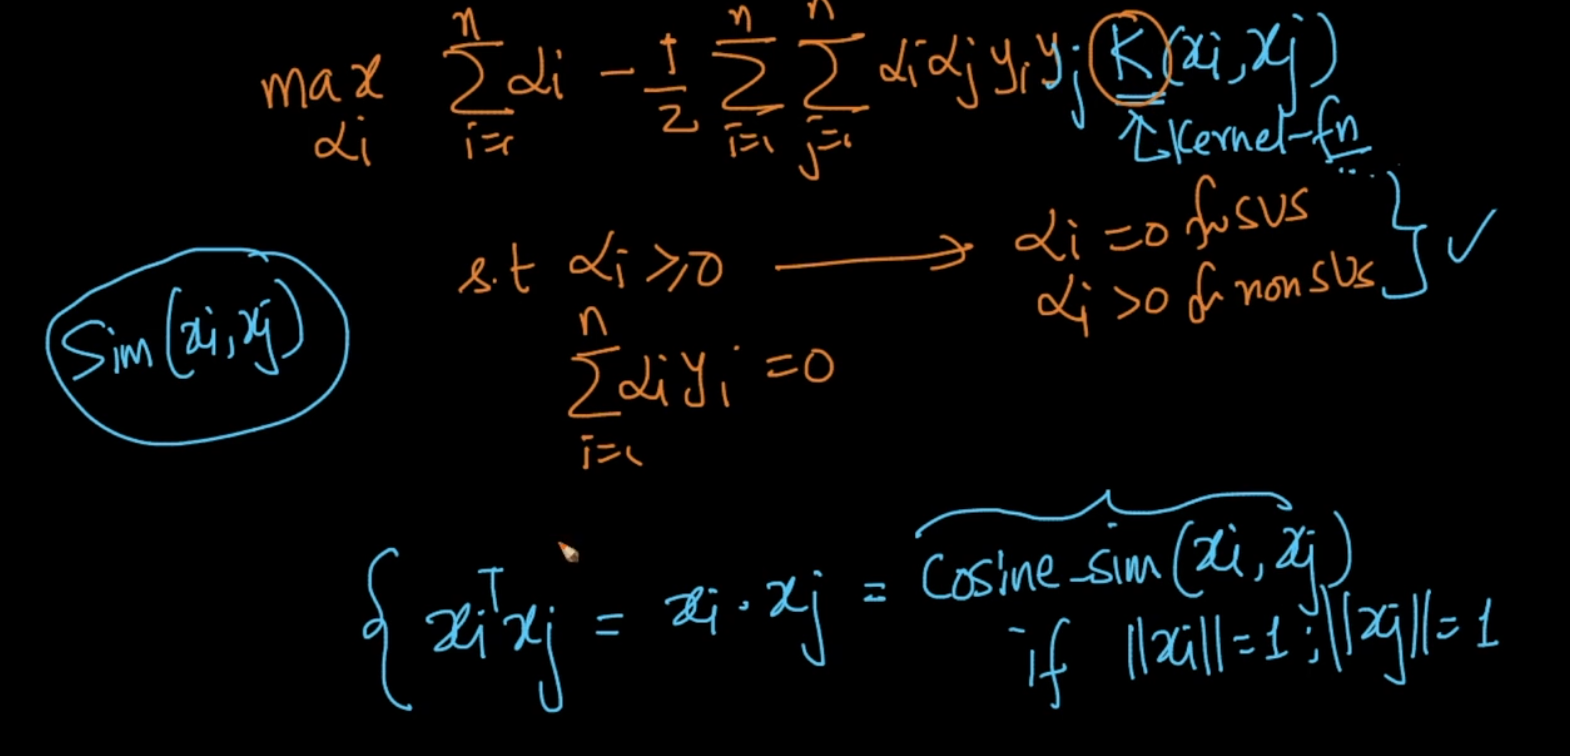 max αi Σ i=1 n αi - 1/2 Σ i=1 n Σ j=1 n αi αj yi yj K(xi, xj)
↑ Kernel-fn
s.t αi ≥ 0 → αi = 0 for SVs
αi > 0 for non SVs } ✓
Sim(xi, xj)
Σ i=1 n αi yi = 0
{ xiᵀxj = xi · xj = Cosine-sim(xi, xj)
if ||xi|| = 1 ; ||xj|| = 1